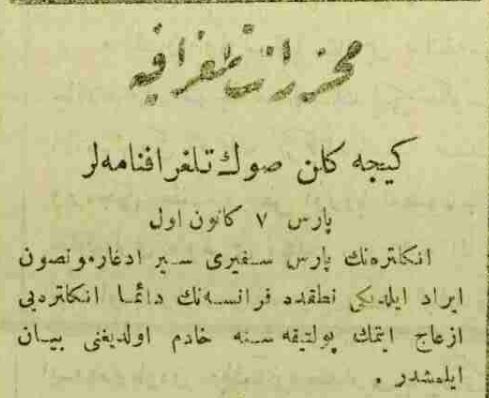 مخبرات تلغرافیه
كیجه كلن صوك تلغرافنامه‌لر
پارس ۷ كانون اول
انكلتره‌نك پارس سفیری سیر ادغارمونصون
ایراد ایلدیكی نطقده فرانسه‌نك دائما انكلتره‌یی
ازعاج ایتمك پولتیقه‌سنه خادم اولدیغنی بیان
ایله‌مشدر .